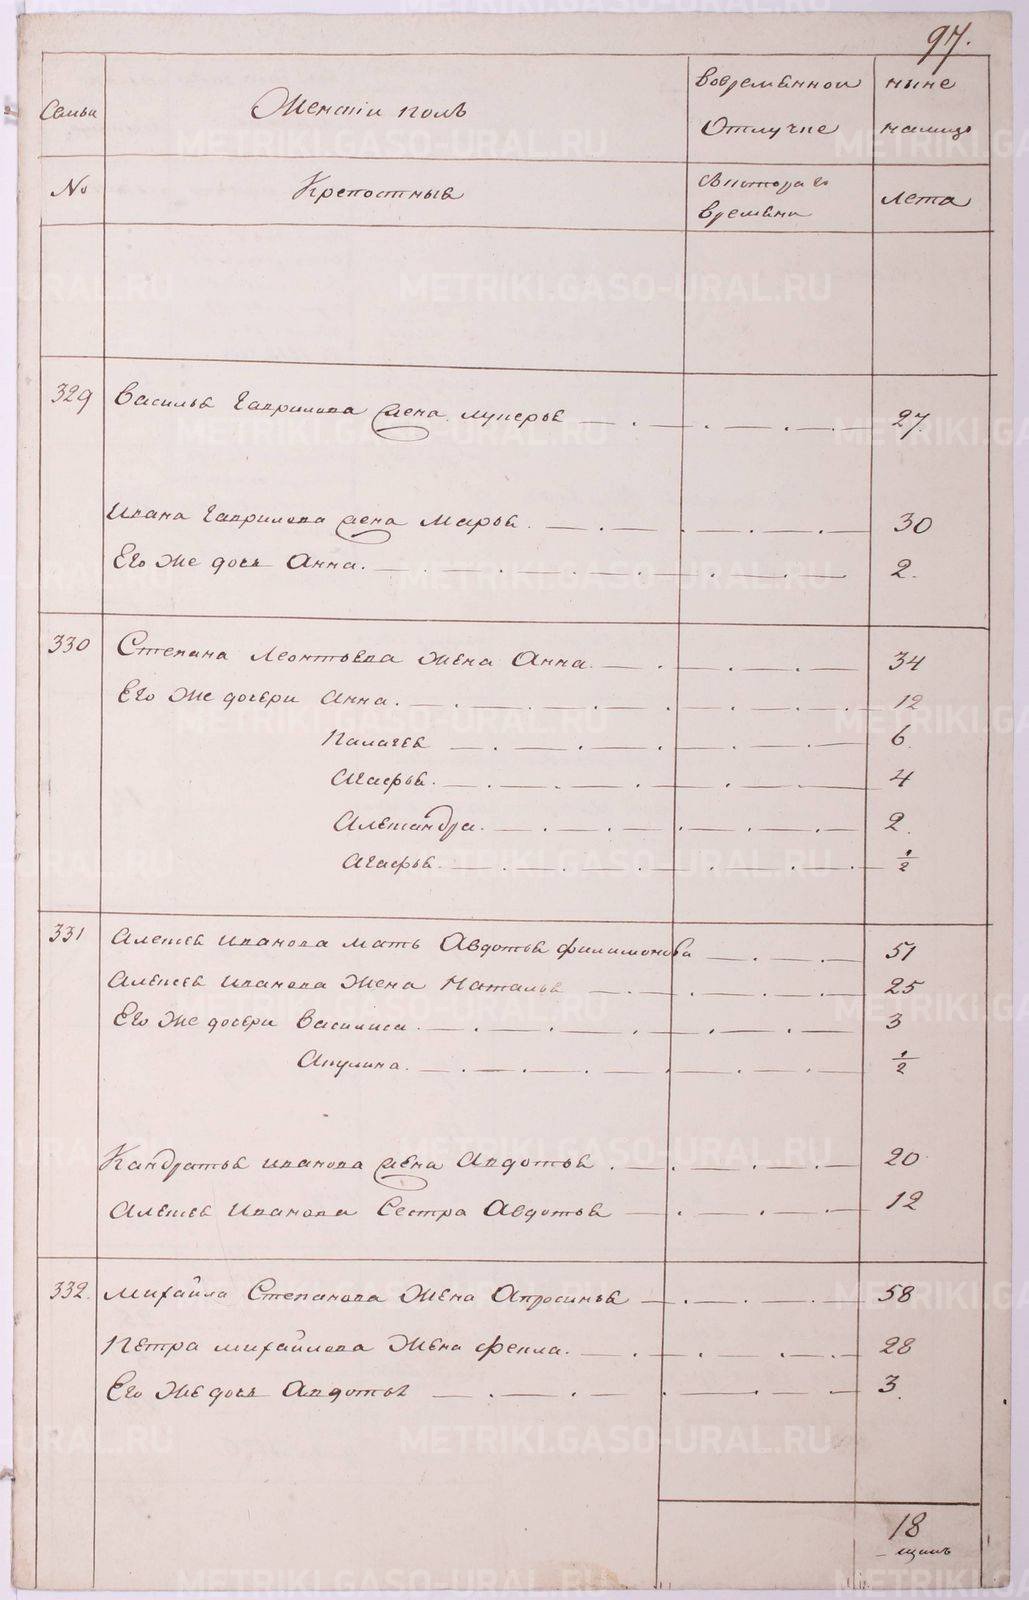 97.
Семьи
Женскiи полъ
вовременнои
Отлучке
ныне
налицо
№
Крепостныя
Лета
329 Василья Гаврилова жена лукерья 27
Ивана Гаврилова жена Марья 30
Его же дочь Анна. 2.
330 Степана Леонтьева жена Анна 34
Его же дочери Анна. 12
Палагея 6.
Агафья. 4
Александра. 2.
Агафья. 1/2
331 Алексея иванова мать Авдотья филимонова 51
Алексея иванова жена Наталья 25
Его же дочери Василиса. 3
Акулина. 1/2
Кандратья иванова жена Авдотья. 20
Алексея Иванова Сестра Авдотья 12
332. михайла Степанова жена Апросинья 58
Петра михайлова жена фекла. 28
Его же дочь Авдотья 3.
18
METRIKI.GASO-URAL.RU